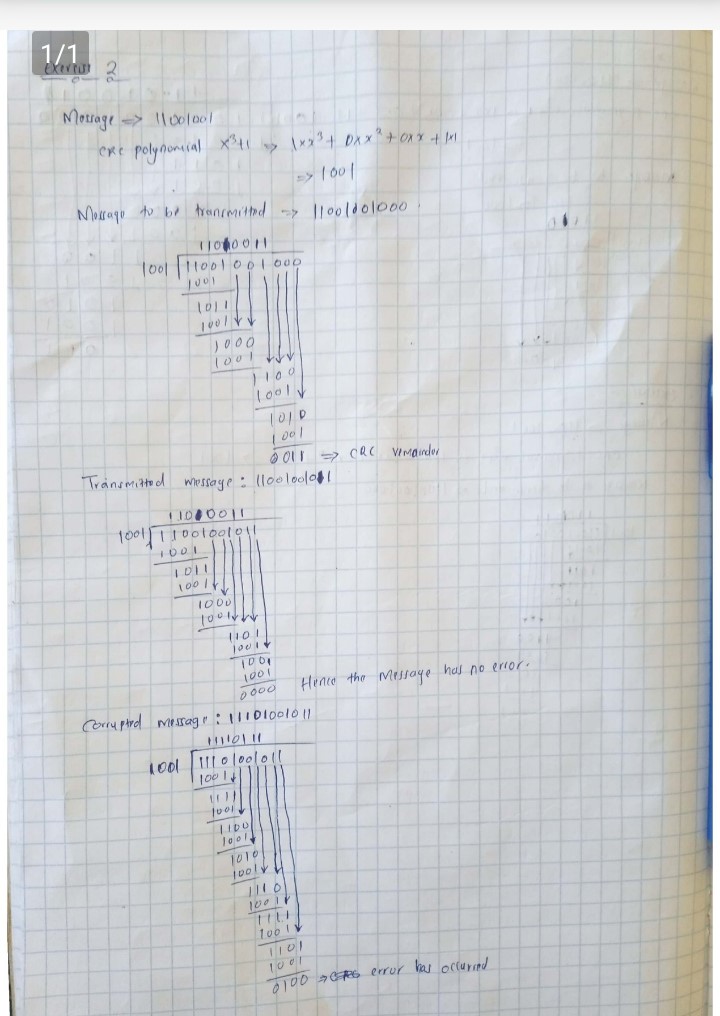 1/1
Exercise 2
Message => 11001001
CRC polynomial x³+1 => 1×x³ + 0×x² + 0×x + 1×1
=> 1001
Message to be transmitted => 11001001000
11010011
1001 11001001000
1001
1011
1001
1000
1001
1100
1001
1010
1001
0011 => CRC remainder
Transmitted message : 11001001011
11010011
1001 11001001011
1001
1011
1001
1000
1001
1101
1001
1001
1001
0000 Hence the message has no error.
Corrupted message : 11101001011
1111011
1001 11101001011
1001
1111
1001
1100
1001
1010
1001
1110
1001
1111
1001
1101
1001
0100 => error has occurred